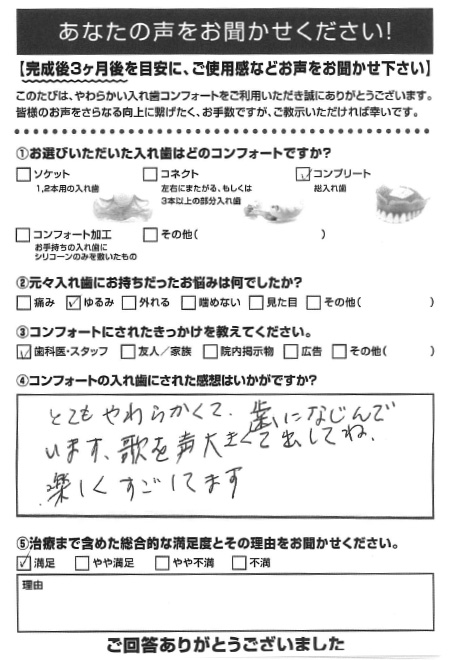 あなたの声をお聞かせください!
【完成後3ヶ月後を目安に、ご使用感などお声をお聞かせ下さい】
このたびは、やわらかい入れ歯コンフォートをご利用いただき誠にありがとうございます。
皆様のお声をさらなる向上に繋げたく、お手数ですが、ご教示いただければ幸いです。
①お選びいただいた入れ歯はどのコンフォートですか?
□ソケット □コネクト ☑コンプリート
1,2本用の入れ歯 左右にまたがる、もしくは 総入れ歯
3本以上の部分入れ歯
□コンフォート加工 □その他( )
お手持ちの入れ歯に
シリコーンのみを敷いたもの
②元々入れ歯にお持ちだったお悩みは何でしたか?
□痛み ☑ゆるみ □外れる □噛めない □見た目 □その他( )
③コンフォートにされたきっかけを教えてください。
☑歯科医・スタッフ □友人/家族 □院内掲示物 □広告 □その他( )
④コンフォートの入れ歯にされた感想はいかがですか?
とてもやわらかくて、歯になじんで
います、歌を声大きくて出してね、
楽しくすごしてます
⑤治療まで含めた総合的な満足度とその理由をお聞かせください。
☑満足 □やや満足 □やや不満 □不満
理由
ご回答ありがとうございました